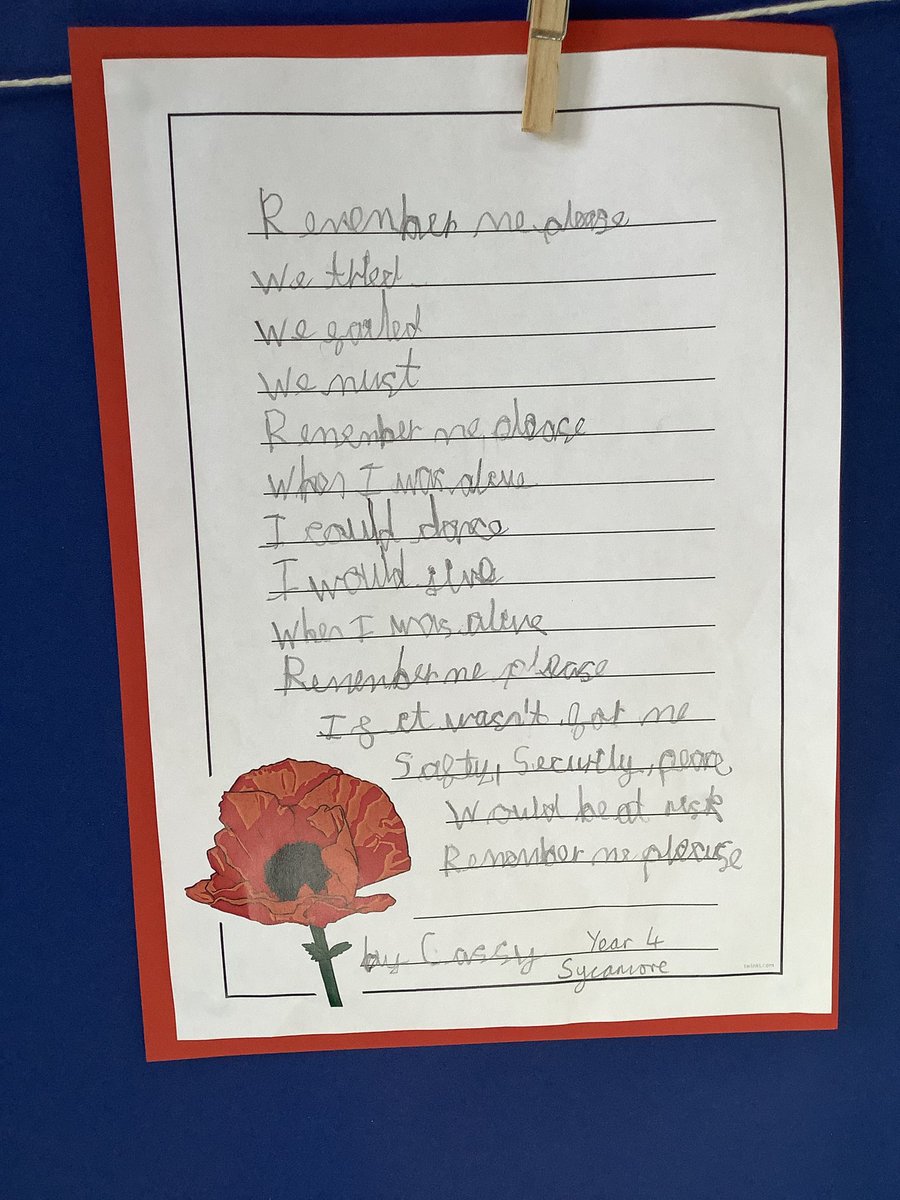 Remember me please
We tried
We failed
We must
Remember me please
When I was alive
I could dance
I would jive
When I was alive
Remember me please
If it wasn't for me
Safty, Security, peace
Would be at risk
Remember me please
by Cassy Year 4
Sycamore
twinkl.com